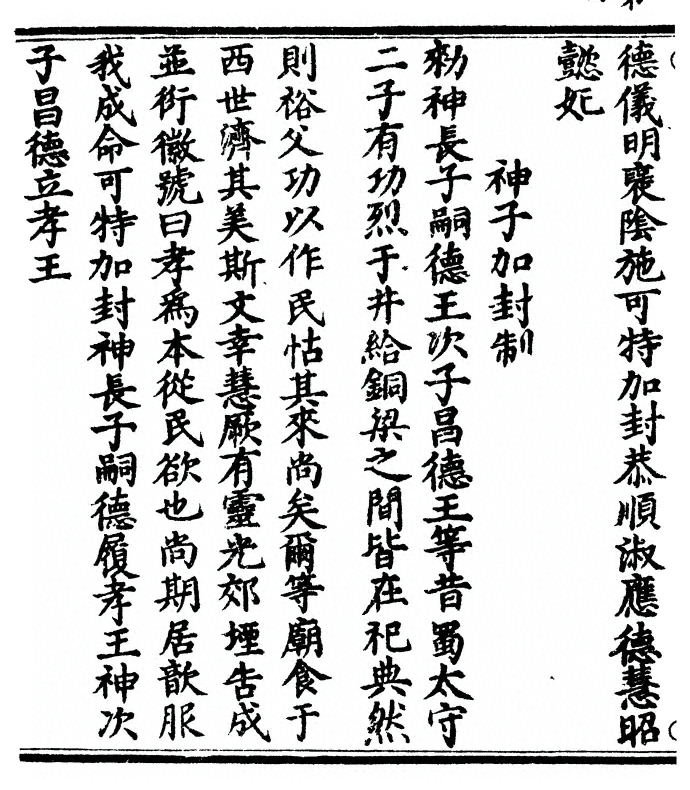 德儀明褒陰施可特加封恭順淑應德慧昭
懿妃
神子加封制
勑神長子嗣德王次子昌德王等昔蜀太守
二子有功烈于井給銅梁之間皆在祀典然
則裕父功以作民怙其來尚矣爾等廟食于
西世濟其美斯文幸慧厥有靈光郊堙告成
並衍徽號曰孝爲本從民欲也尚期居歆服
我成命可特加封神長子嗣德履孝王神次
子昌德立孝王